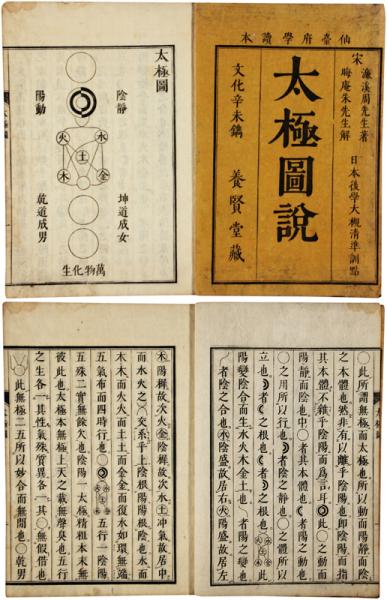 仙臺府學讀本
宋
濂溪周先生著
晦庵朱先生解
日本後學大槻清準訓點
太極圖說
文化辛未鐫 養賢堂藏
太極圖
陰靜
陽動
水
火
土
金
木
坤道成女
乾道成男
萬物化生
○此所謂無極而太極也所以動而陽靜而陰
之本體也然非有以離乎陰陽也即陰陽而指
其本體不雜乎陰陽而為言耳此○之動而
陽靜而陰也中○者其本體也者陽之動也
○之用所以行也者陰之靜也○之體所以
立也者之根也者之根也水火土木金此
陽變陰合而生水火木金土也者陽之變也
者陰之合也水陰盛故居右火陽盛故居左
木陽穉故次火金陰穉故次水土冲氣故居中
而水火之交系乎上陰根陽陽根陰也水而
木木而火火而土土而金金而復水如環無端
五氣布而四時行也○水火土木金五行一陰陽
五殊二實無餘欠也陰陽一太極精粗本末無
彼此也太極本無極上天之載無聲臭也五行
之生各一其性氣殊質異各一其○無假借也
此無極二五所以妙合而無間也○乾男